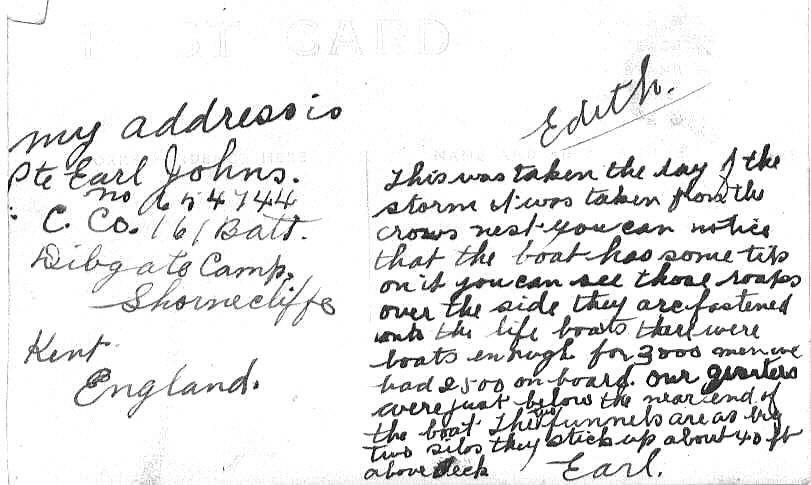 POST CARD
my address is
Pte Earl Johns.
no 654744
C. Co. 161 Batt.
Dibgate Camp.
Shornecliffe
Kent
England.
Edith.
This was taken the day of the
storm it was taken from the
crows nest you can notice
that the boat has some tip
on it you can see those roaps
over the side they are fastened
onto the life boats there were
boats enough for 3000 men we
had 2500 on board. our quarters
were just below the near end of
the boat. The two funnels are as big
two silos they stick up about 40 ft
above deck
Earl.